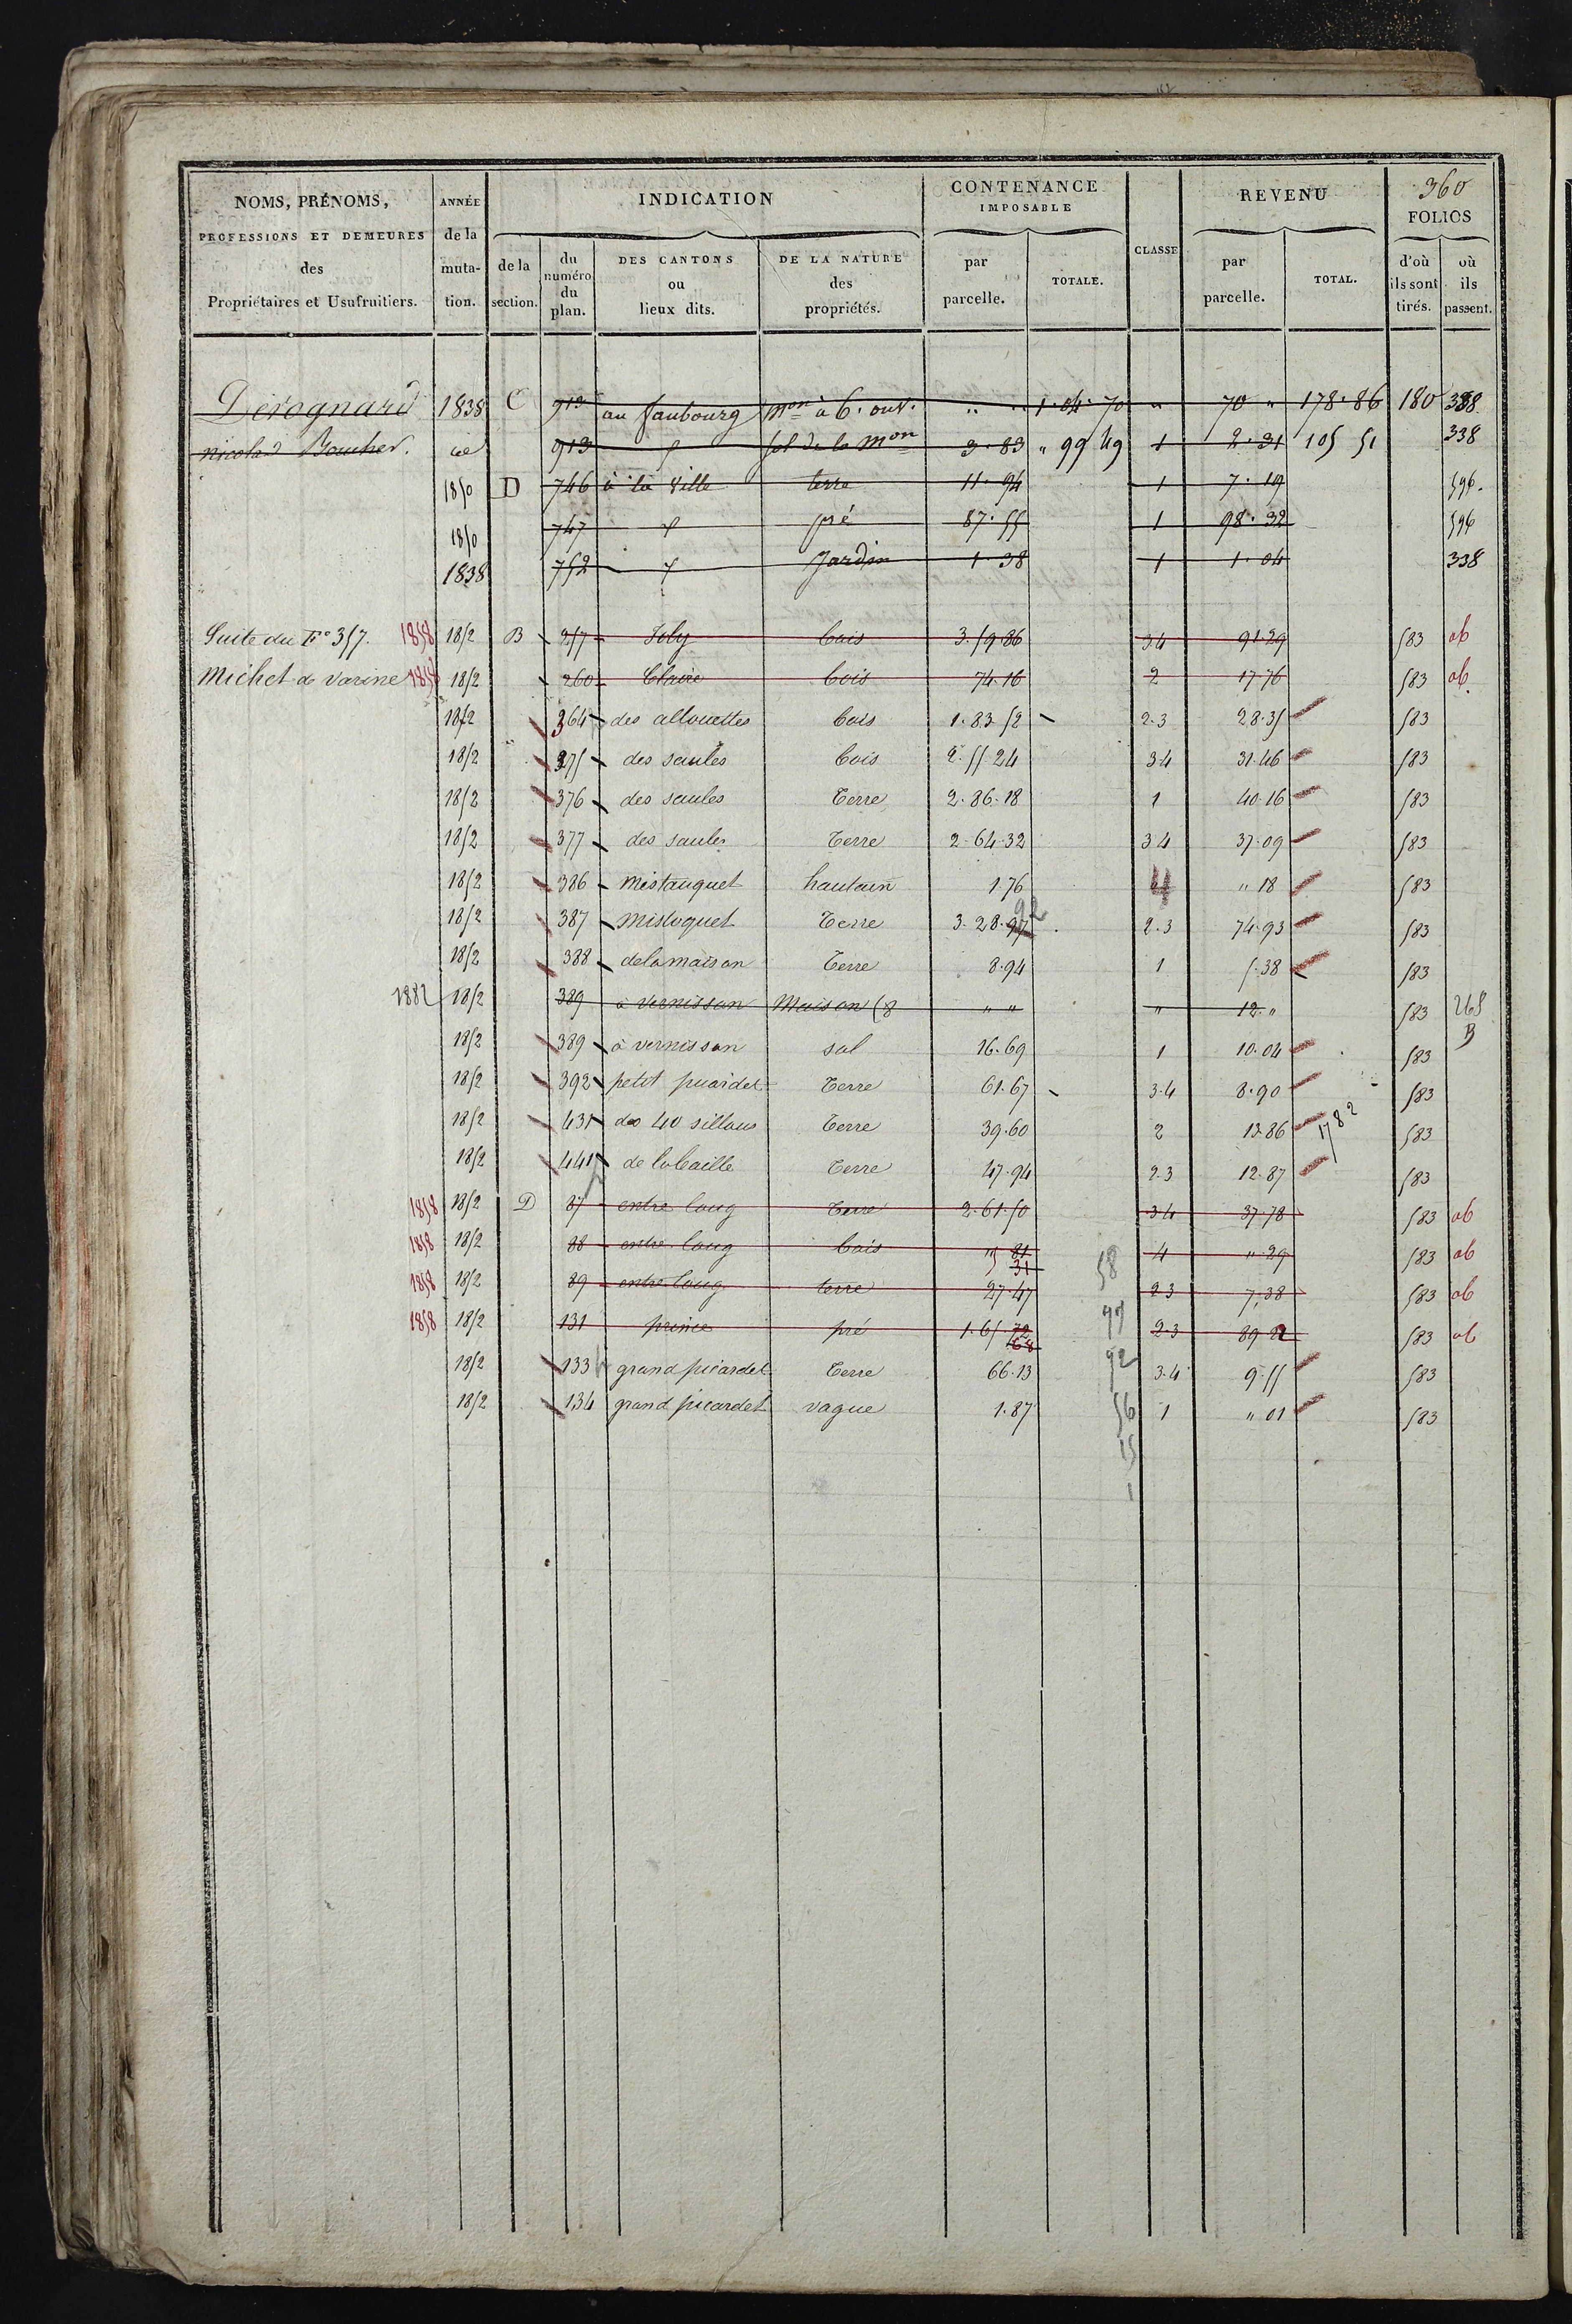 360
NOMS, PRÉNOMS, PROFESSIONS ET DEMEURES des Propriétaires et Usufruitiers.
ANNÉE de la mutation.
INDICATION
de la section.
du numéro du plan.
DES CANTONS ou lieux dits.
DE LA NATURE des propriétés.
CONTENANCE IMPOSABLE
par parcelle.
TOTALE.
CLASSE
REVENU
par parcelle.
TOTAL.
FOLIOS
d'où ils sont tirés.
où ils passent.
Derognard 1838 C 913 au faubourg mon à 6. ouv. " " 1.04.70 " 70 " 178.86 180 338
nicolas Boucher. id 913 sol de la mon 3.83 " 99 49 1 2.31 105 51 338
1850 D 746 à la ville terre 11.94 1 7.19 596.
1850 747 pré 87.55 1 98.32 596
1838 752 Jardin 1.38 1 1.04 338
Suite du Fo 357. 1858 1852 B 257 Joly bois 3.59.86 3.4 91.29 583 ab
Michet de varine 1858 1852 260 Claire bois 74.16 2 17.76 583 ab.
1852 364 des allouettes bois 1.83.52 2.3 28.35 583
1852 375 des saules bois 2.55.24 3.4 31.46 583
1852 376 des saules Terre 2.86.18 1 40.16 583
1852 377 des saules Terre 2.64.32 3.4 37.09 583
1852 386 mistauquet hautain 1.76 4 " 18 583
1852 387 mistoquet Terre 3.28.97 92 2.3 74.93 583
1852 388 dela maison Terre 8.94 1 5.38 583
1882 1852 389 à vernissan Maison (8 " " " 12. " 583 265 B
1852 389 à vernissan sol 16.69 1 10.04 583
1852 392 petit picardet Terre 61.67 3.4 8.90 583
1852 431 des 40 sillons Terre 39.60 2 13.86 1782 583
1852 441 de labaille Terre 47.94 2.3 12.87 583
1858 1852 D 87 entre loug Terre 2.61.50 3.4 37.78 583 ab
1858 1852 88 entre loug bois 5 81 31 58 4 " 29 583 ab
1858 1852 89 entre loug terre 27.47 2.3 7.38 583 ab
1858 1852 131 prince pré 1.65.72 68 97 2.3 89.22 583 ab
1852 133 grand picardet Terre 66.13 92 3.4 9.55 583
1852 134 grand picardet vague 1.87 56 1 " 01 583
15
1